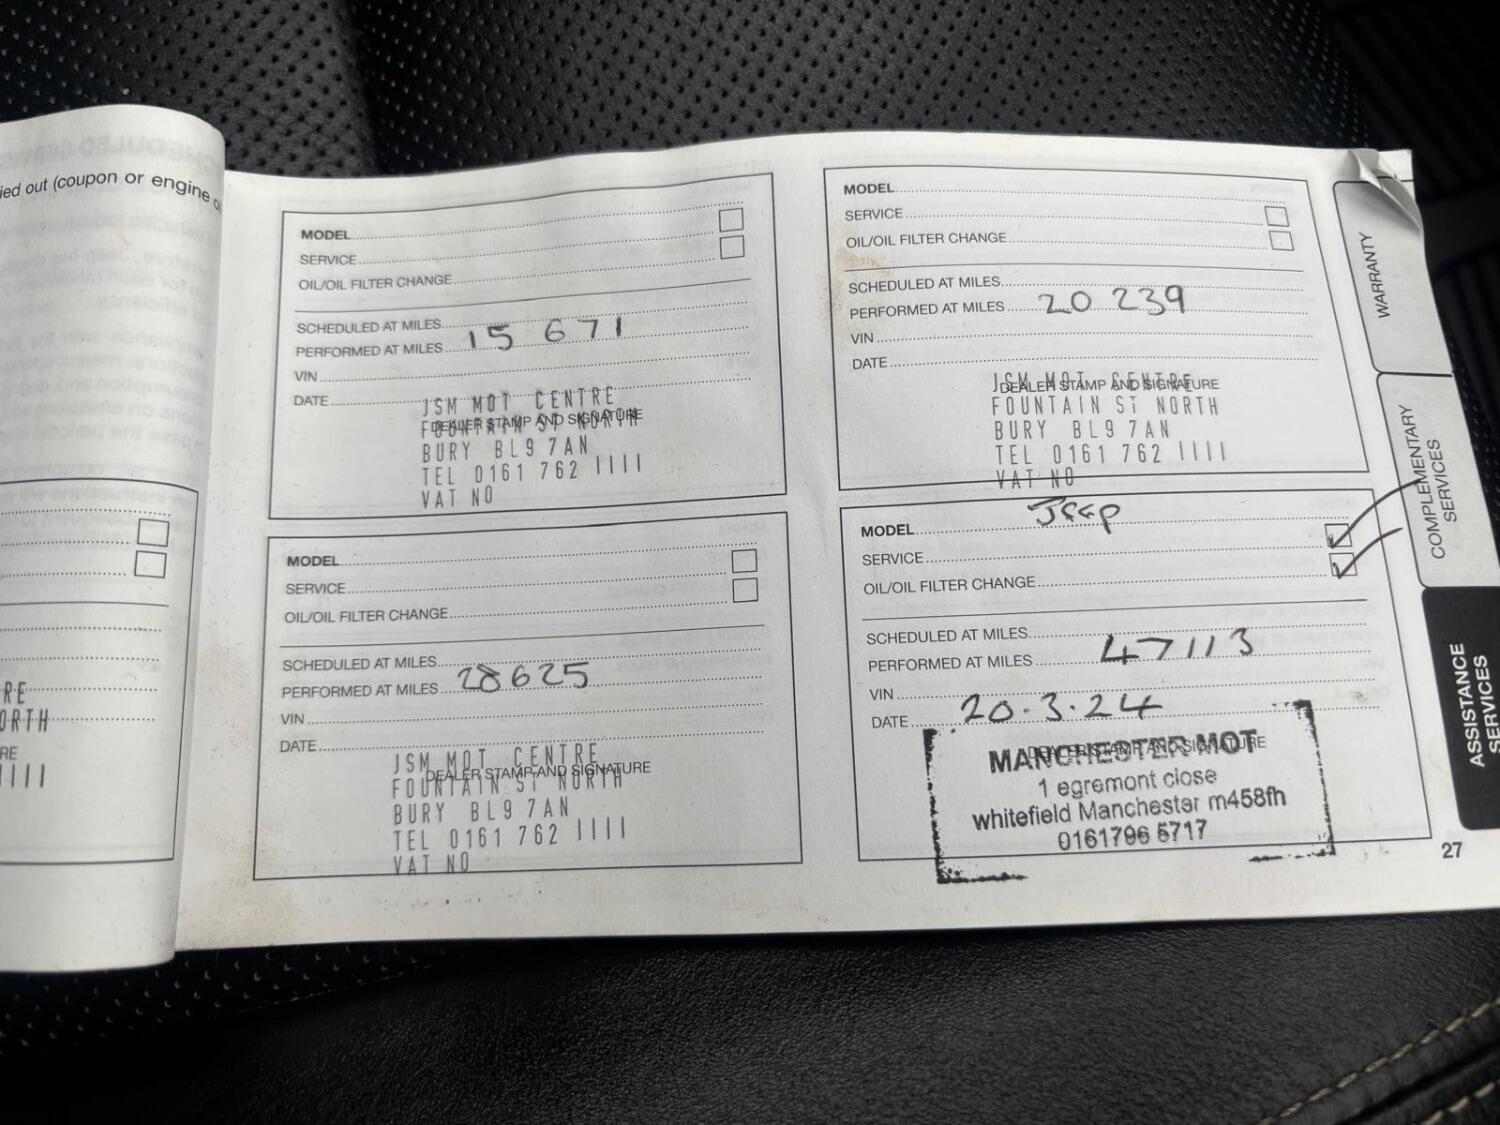 ied out (coupon or engine
RE
ORTH
RE
1111
MODEL
SERVICE
OIL/OIL FILTER CHANGE
SCHEDULED AT MILES
PERFORMED AT MILES 15 671
VIN
DATE
JSM MOT CENTRE
DEALER STAMP AND SIGNATURE
FOUNTAIN ST NORTH
BURY BL9 7AN
TEL 0161 762 1111
VAT NO
MODEL
SERVICE
OIL/OIL FILTER CHANGE
SCHEDULED AT MILES
PERFORMED AT MILES 20 239
VIN
DATE
JSM MOT CENTRE
DEALER STAMP AND SIGNATURE
FOUNTAIN ST NORTH
BURY BL9 7AN
TEL 0161 762 1111
VAT NO
MODEL
SERVICE
OIL/OIL FILTER CHANGE
SCHEDULED AT MILES
PERFORMED AT MILES 28625
VIN
DATE
JSM MOT CENTRE
DEALER STAMP AND SIGNATURE
FOUNTAIN ST NORTH
BURY BL9 7AN
TEL 0161 762 1111
VAT NO
MODEL Jeep
SERVICE
OIL/OIL FILTER CHANGE
SCHEDULED AT MILES
PERFORMED AT MILES 47113
VIN
DATE 20.3.24
DEALER STAMP AND SIGNATURE
MANCHESTER MOT
1 egremont close
whitefield Manchester m458fh
0161796 5717
WARRANTY
COMPLEMENTARY
SERVICES
ASSISTANCE
SERVICES
27